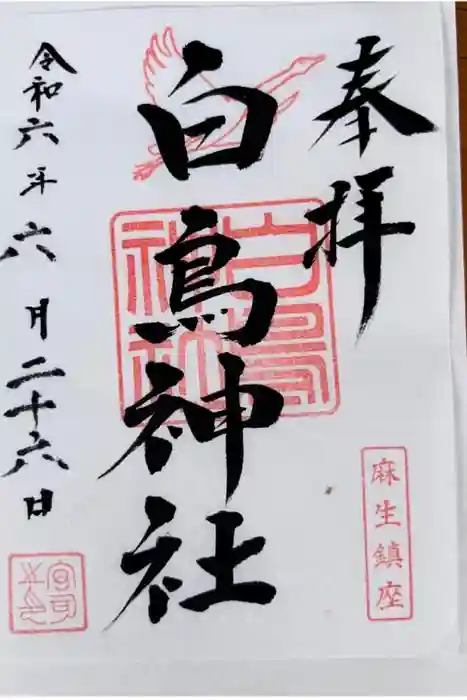 奉拝
白鳥神社
白鳥神社
麻生鎮座
令和六年六月二十六日
宮司之印